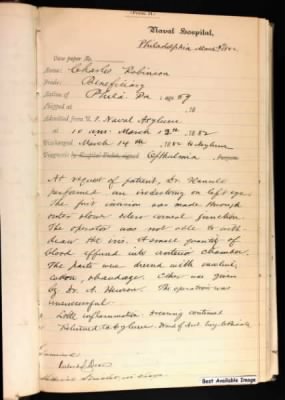 Naval Hospital,
Philadelphia
Case paper No.
Name: Charles Robinson
Grade: Beneficiary
Native of Phila. Pa. age 59
Shipped at , 18
Admitted from U.S. Naval Asylum
at 10 a.m. March 13th, 1882
Discharged March 14th, 1882 to Asylum
Diagnosis by Ofthalmia
At request of patient, Dr.
performed an iridectomy on left eye.
The first incision was made through
outer sclero corneal junction.
The operator was not able to with-
draw the iris. A small quantity of
blood effused into anterior chamber.
The parts were dressed with
cotton bandage. Ether was given
by Dr. A. The operation was
unsuccessful.
Little inflammation dressing continued
Returned to Asylum.
Best Available Image